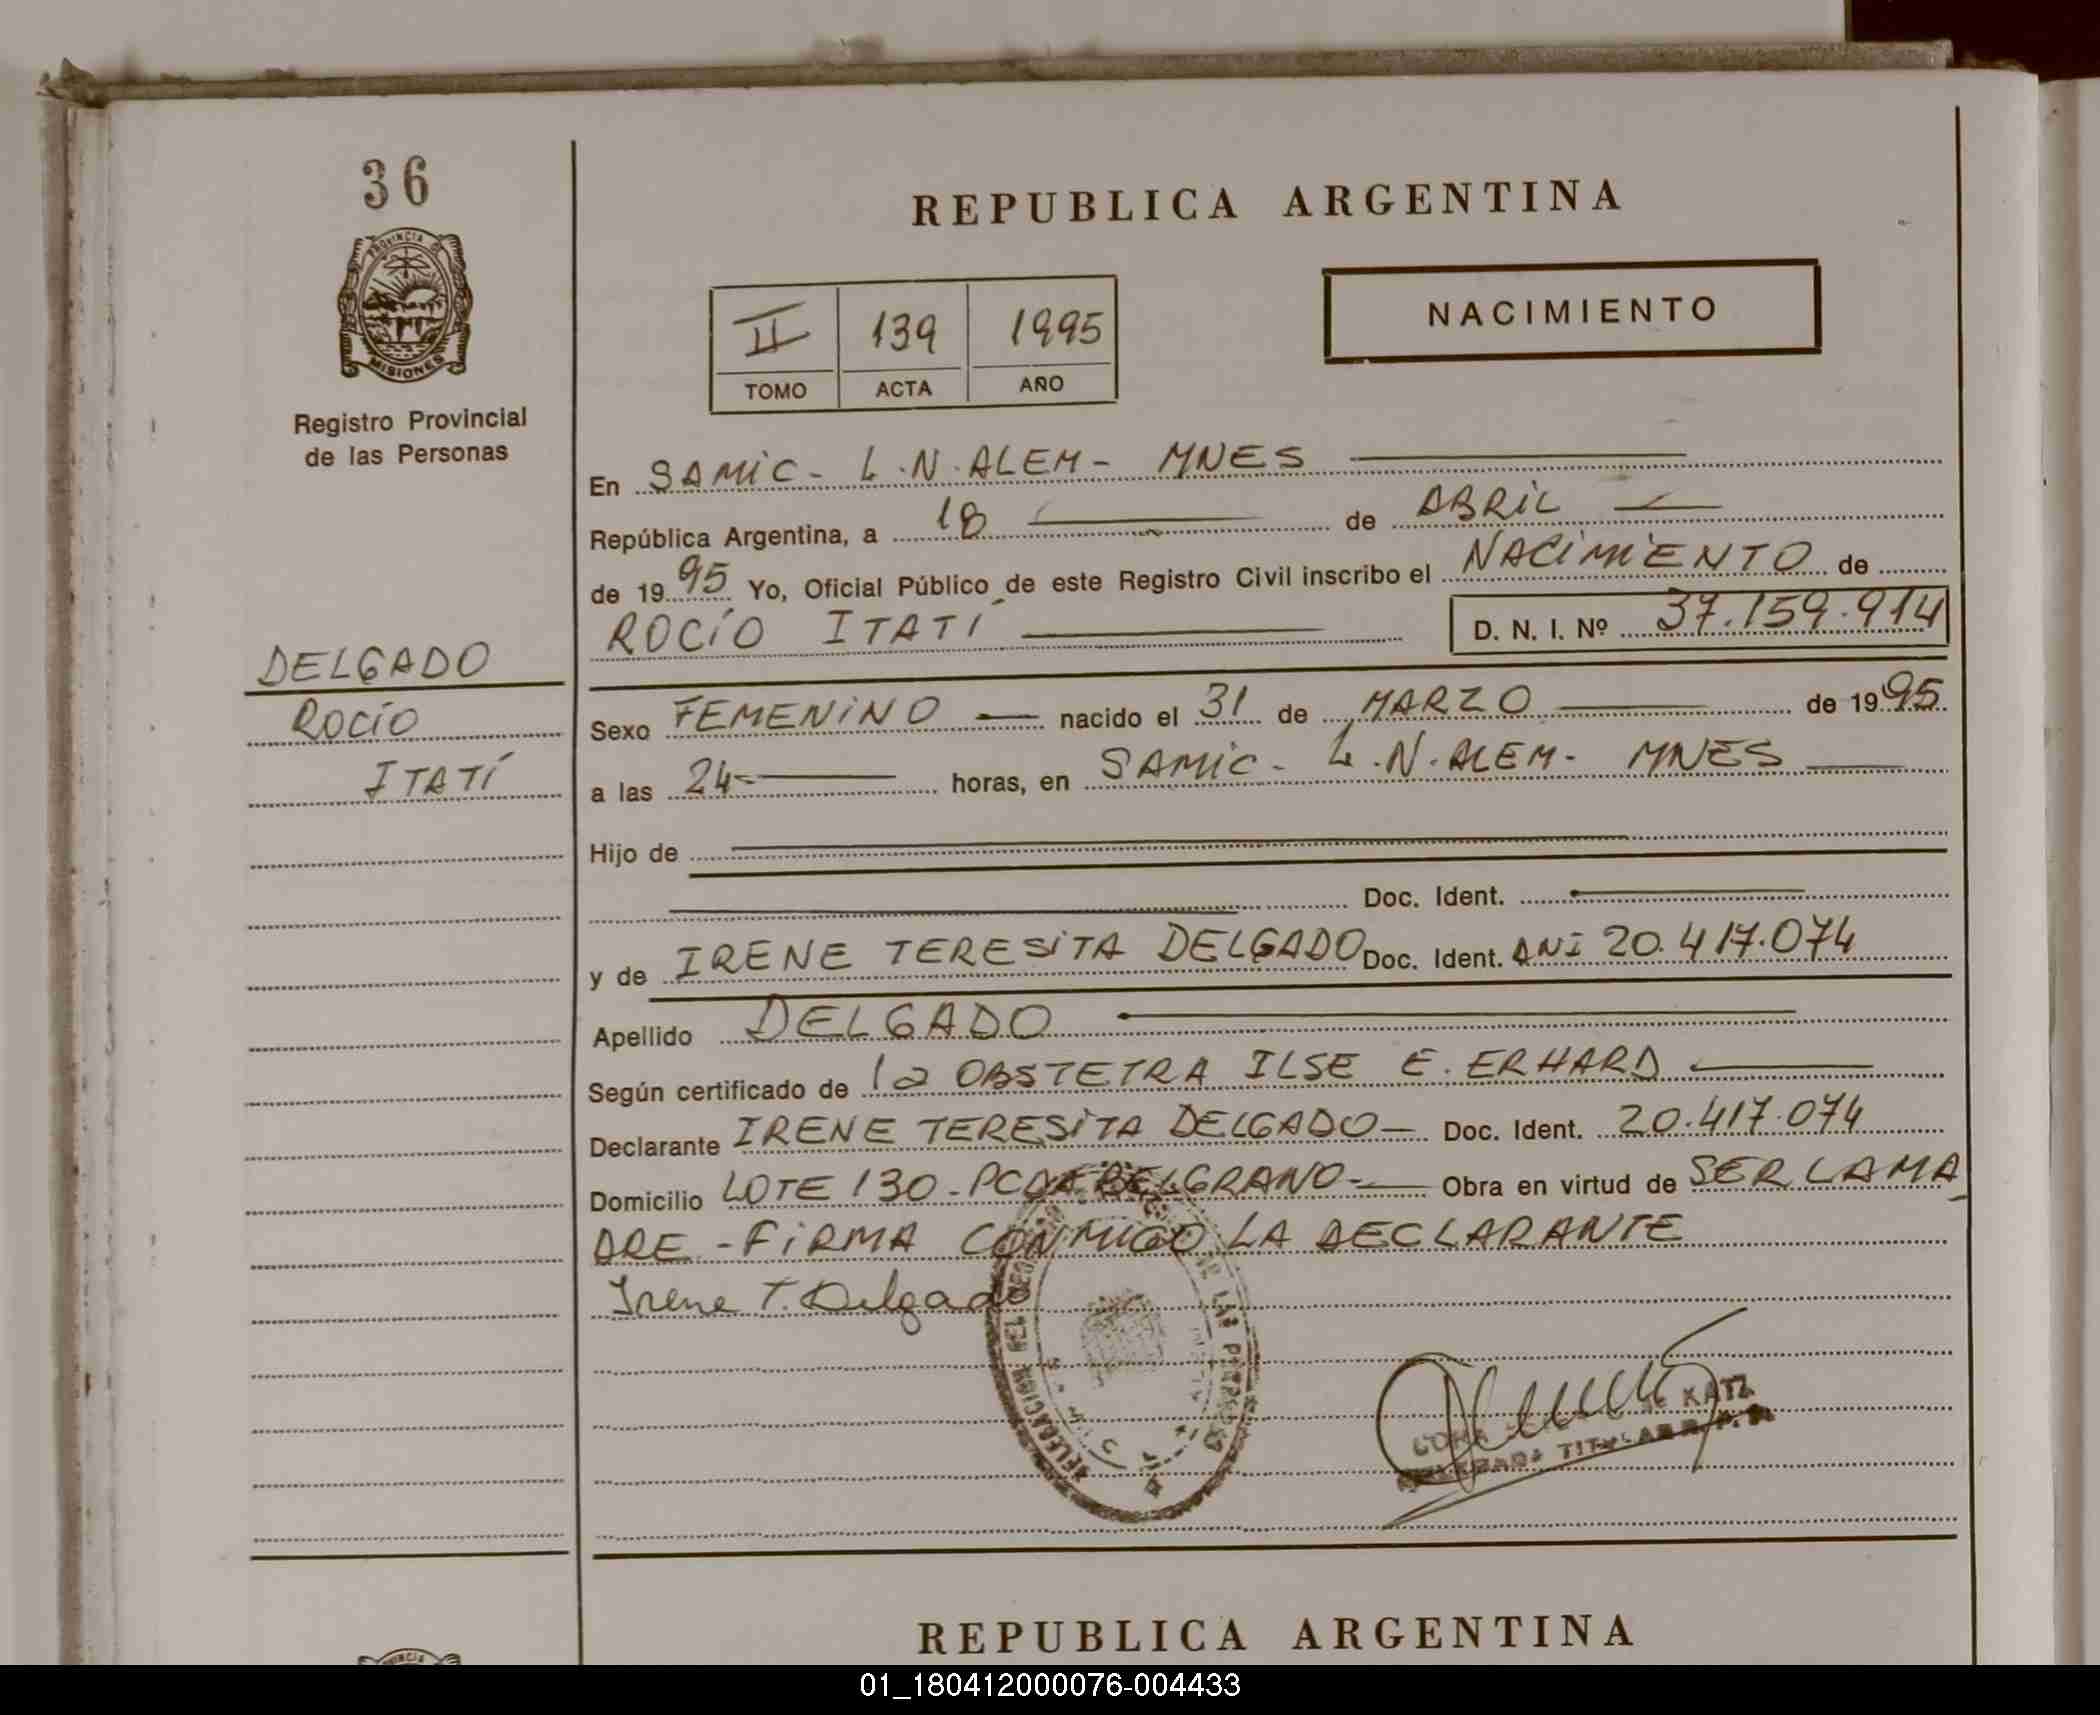 36
PROVINCIA D
MISIONES
Registro Provincial
de las Personas
DELGADO
ROCÍO
ITATÍ
REPUBLICA ARGENTINA
II 139 1995
TOMO ACTA AÑO
NACIMIENTO
En SAMIC - L.N. ALEM - MNES
República Argentina, a 18 de ABRIL
de 1995 Yo, Oficial Público de este Registro Civil inscribo el NACIMIENTO de
ROCÍO ITATÍ D. N. I. Nº 37.159.914
Sexo FEMENINO nacido el 31 de MARZO de 1995
a las 24 horas, en SAMIC - L.N. ALEM - MNES
Hijo de
Doc. Ident.
y de IRENE TERESITA DELGADO Doc. Ident. DNI 20.417.074
Apellido DELGADO
Según certificado de la OBSTETRA ILSE E. ERHARD
Declarante IRENE TERESITA DELGADO - Doc. Ident. 20.417.074
Domicilio LOTE 130 - PCDA BELGRANO - Obra en virtud de SER LA MA
DRE - FIRMA CONMIGO LA DECLARANTE
Irene T. Delgado
DELEGACION DEL LAS PERSONAS
KATZ
TITULAR R. P. P.
REPUBLICA ARGENTINA
01_180412000076-004433